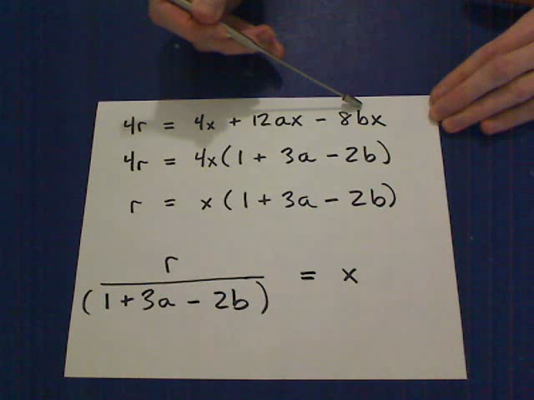 4r = 4x + 12ax - 8bx
4r = 4x(1 + 3a - 2b)
r = x(1 + 3a - 2b)
r
(1 + 3a - 2b) = x